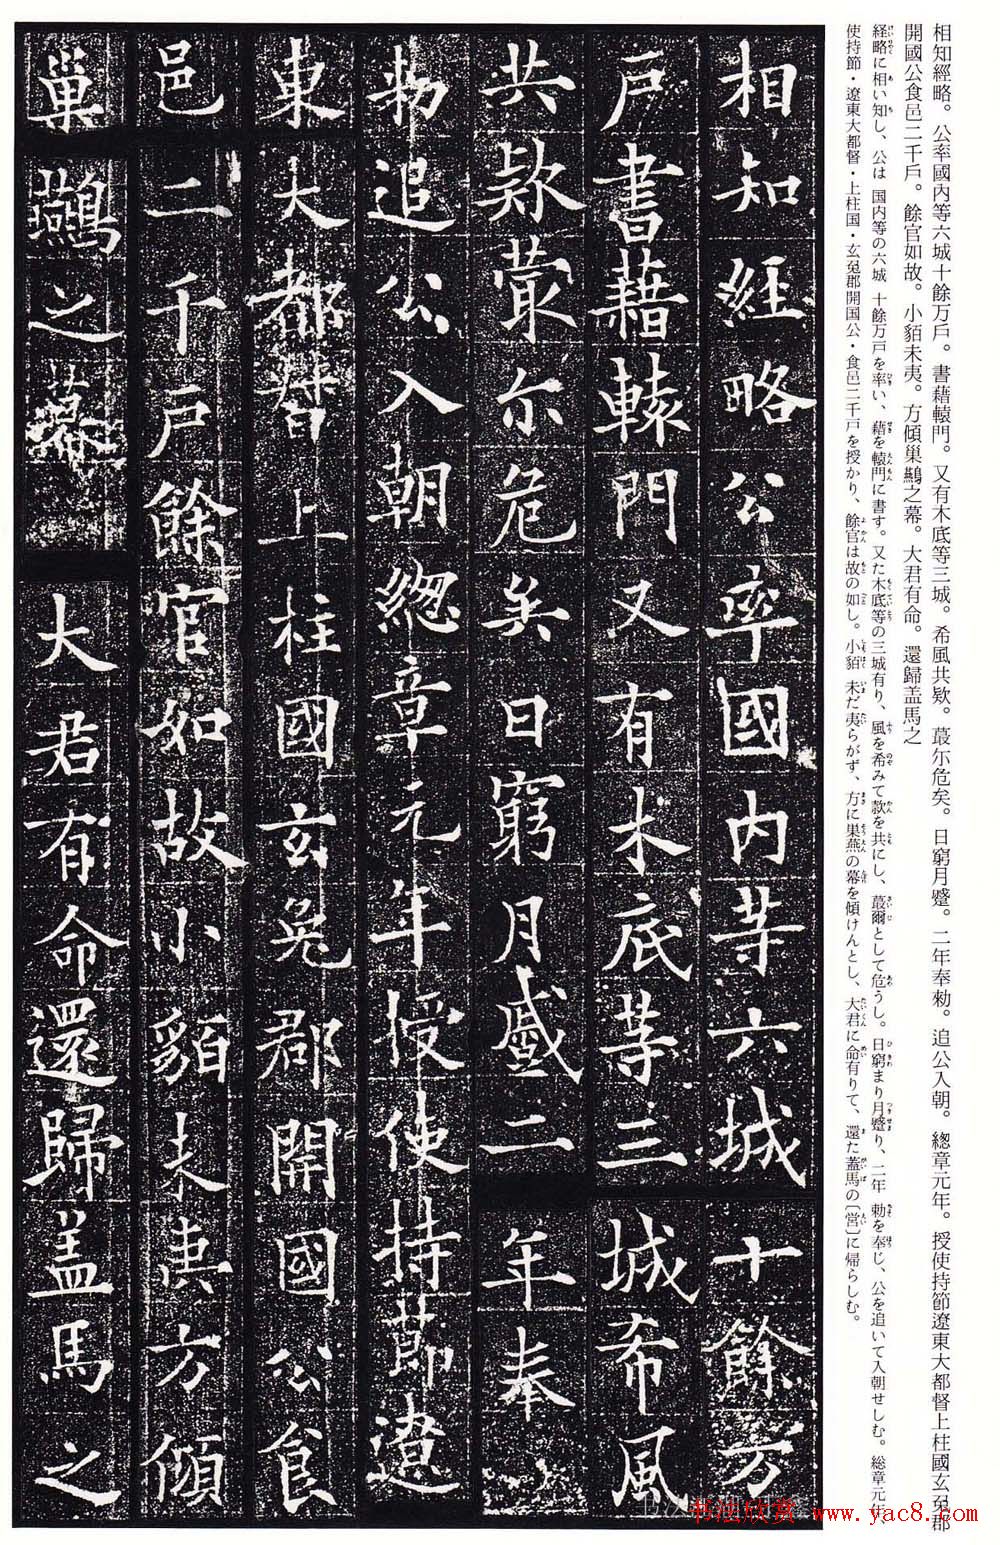 相知經略。公率國內等六城十餘万戶。書藉轅門。又有木底等三城。希風共欵。蕞尓危矣。日窮月蹙。二年奉勑。追公入朝。緫章元年。授使持節遼東大都督上柱國玄菟郡
開國公食邑二千戶。餘官如故。小貊未夷。方傾巢鷰之幕。大君有命。還歸盖馬之
経略に相い知し、公は 国内等の六城 十餘万戸を率い、藉を轅門に書す。又た木底等の三城有り、風を希みて款を共にし、蕞爾として危うし。日窮まり月蹙り、二年 勅を奉じ、公を追いて入朝せしむ。総章元年、
使持節・遼東大都督・上柱国・玄菟郡開国公・食邑二千戸を授かり、餘官は故の如し。小貊 未だ夷らがず、方に巣燕の幕を傾けんとし、大君に命有りて、還た蓋馬の〔営〕に帰らしむ。
相知經略公率國内等六城十餘万
戶書藉轅門又有木底等三城希風
共欵蕞尓危矣日窮月蹙二年奉
勑追公入朝緫章元年授使持節遼
東大都督上柱國玄菟郡開國公食
邑二千戶餘官如故小貊未夷方傾
巢鷰之幕大君有命還歸盖馬之
书法欣赏 www.yac8.com